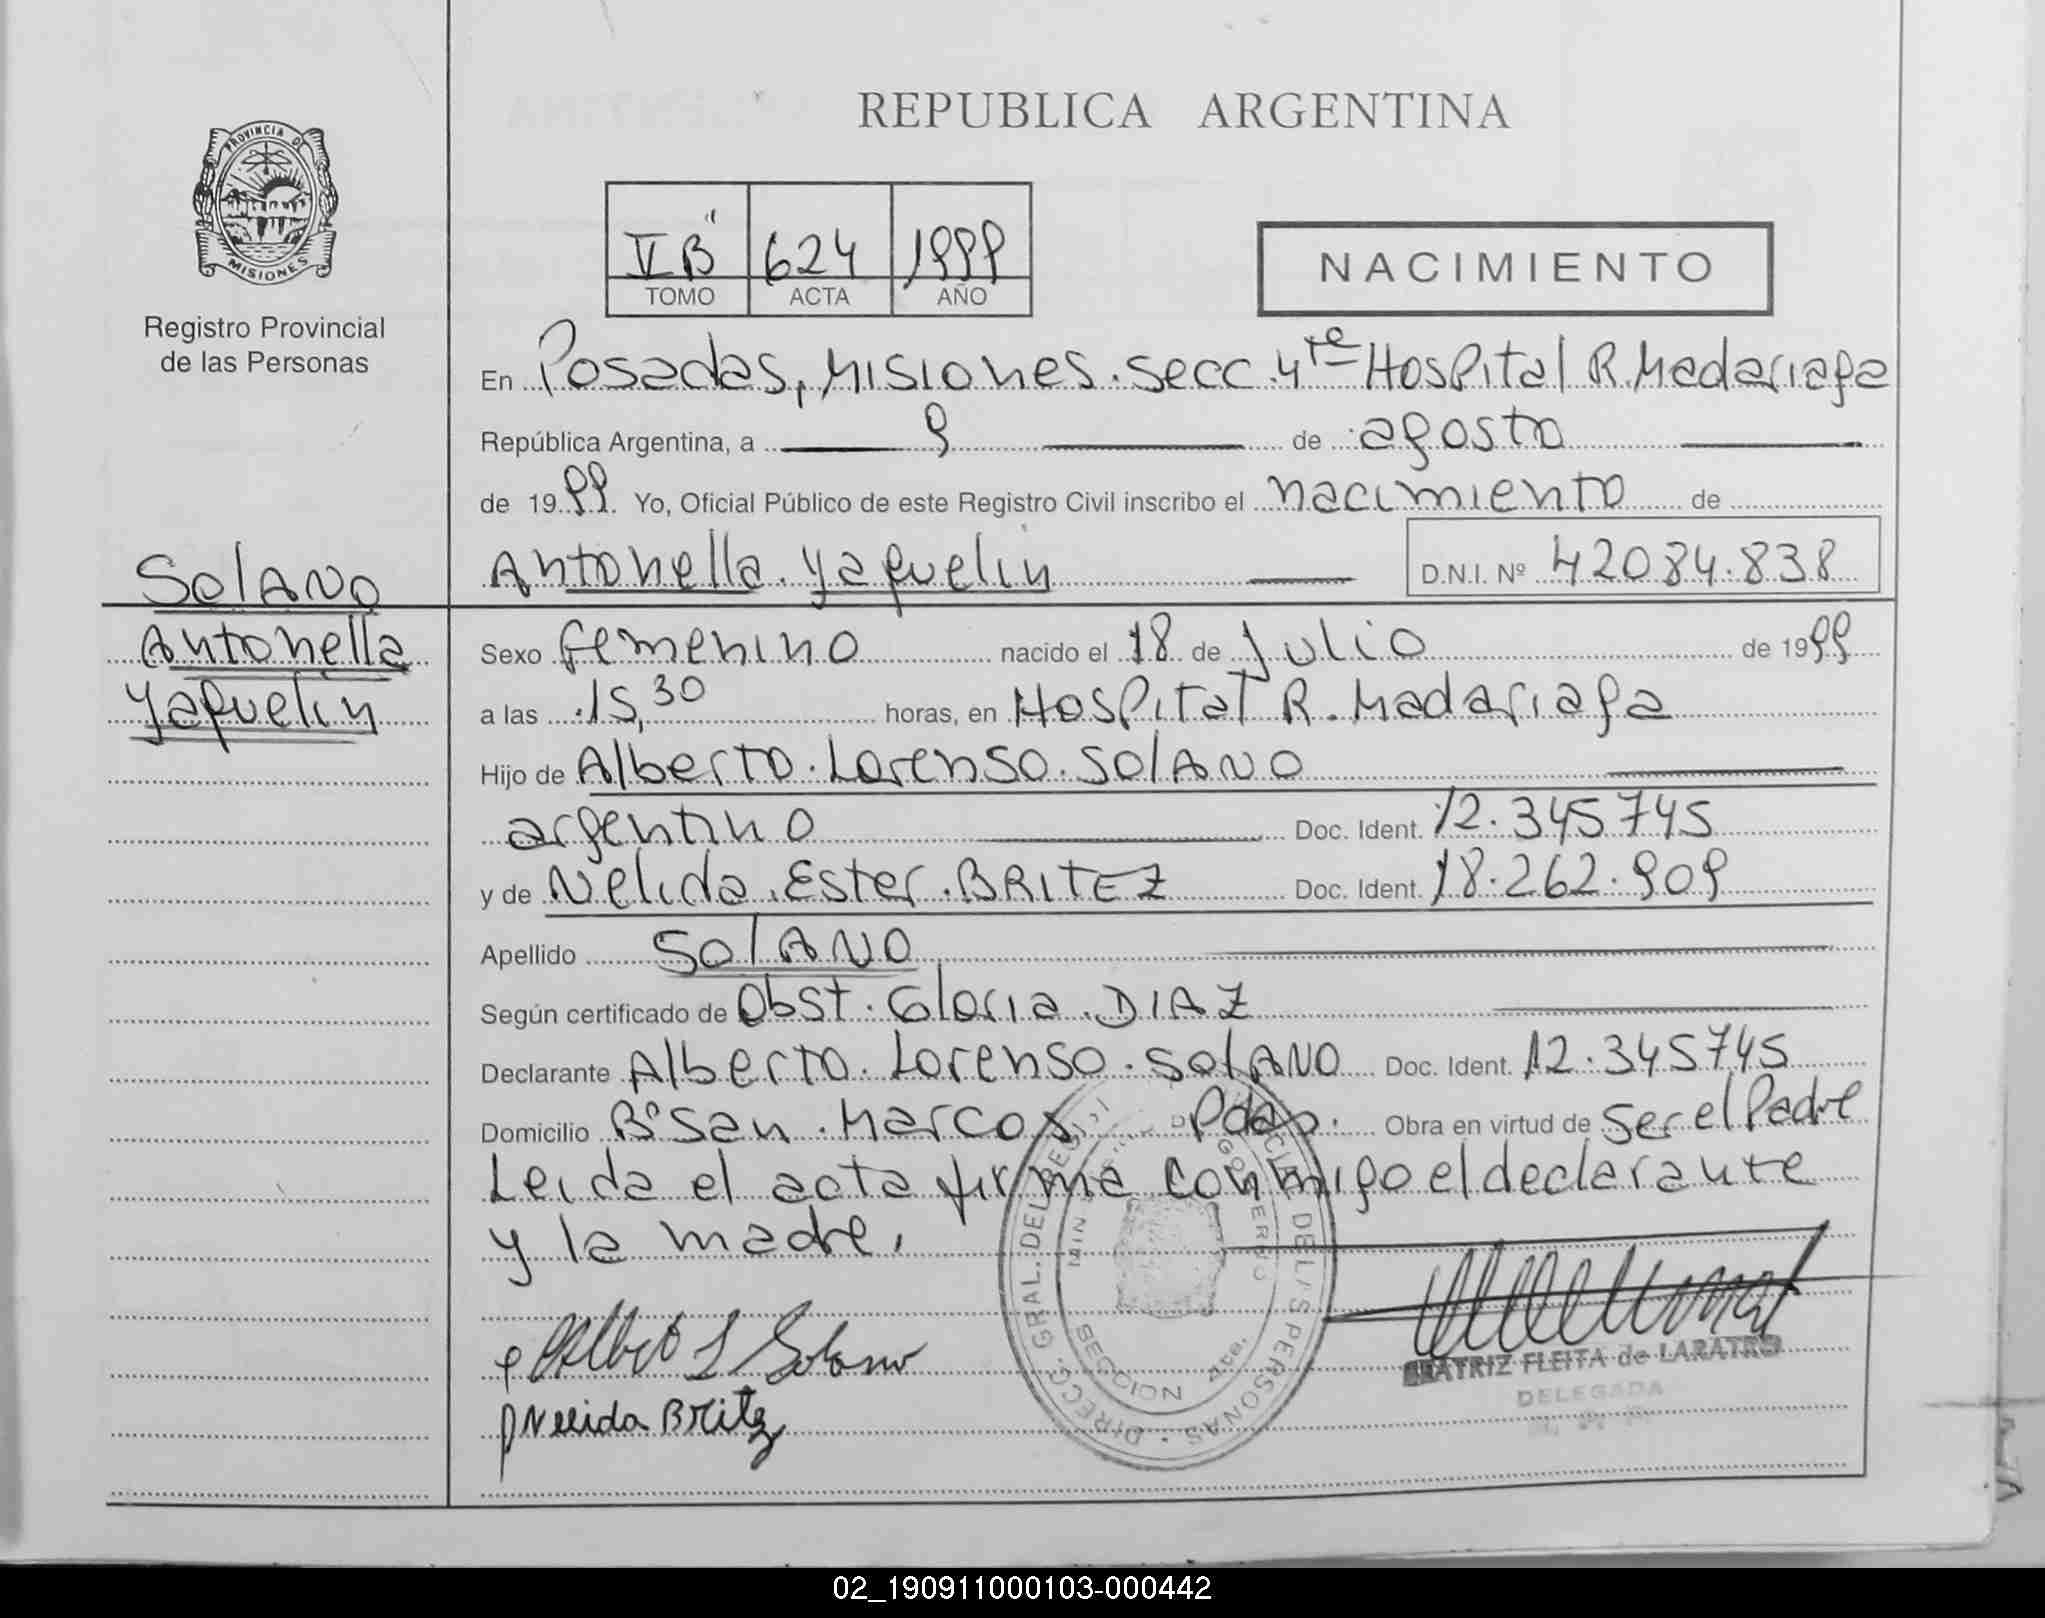 REPUBLICA ARGENTINA
PROVINCIA DE
MISIONES
Registro Provincial
de las Personas
V B" 624 1999
TOMO ACTA AÑO
NACIMIENTO
En Posadas, Misiones. secc. 4ta Hospital R. Madariaga
República Argentina, a 9 de agosto
de 1999. Yo, Oficial Público de este Registro Civil inscribo el nacimiento de
Antonella Yaquelin D.N.I. Nº 42084.838
SolANO
Antonella
Yaquelin
Sexo femenino nacido el 18 de Julio de 1999
a las 15,30 horas, en Hospital R. Madariaga
Hijo de Alberto Lorenso SolANO
argentino Doc. Ident. 12.345745
y de Nelida Ester BRITEZ Doc. Ident. 18.262.909
Apellido SolANO
Según certificado de Obst. Gloria DIAZ
Declarante Alberto Lorenso SolANO Doc. Ident. 12.345745
Domicilio Bº San Marcos Pdas. Obra en virtud de ser el Padre
Leida el acta firma conmigo el declarante
y la madre.
Alberto L Solano
Nelida Britez
DIRECC. GRAL. DEL REGIST PERSONAS
SECCION 4ta.
BEATRIZ FLEITA de LARATRO
DELEGADA
02_190911000103-000442